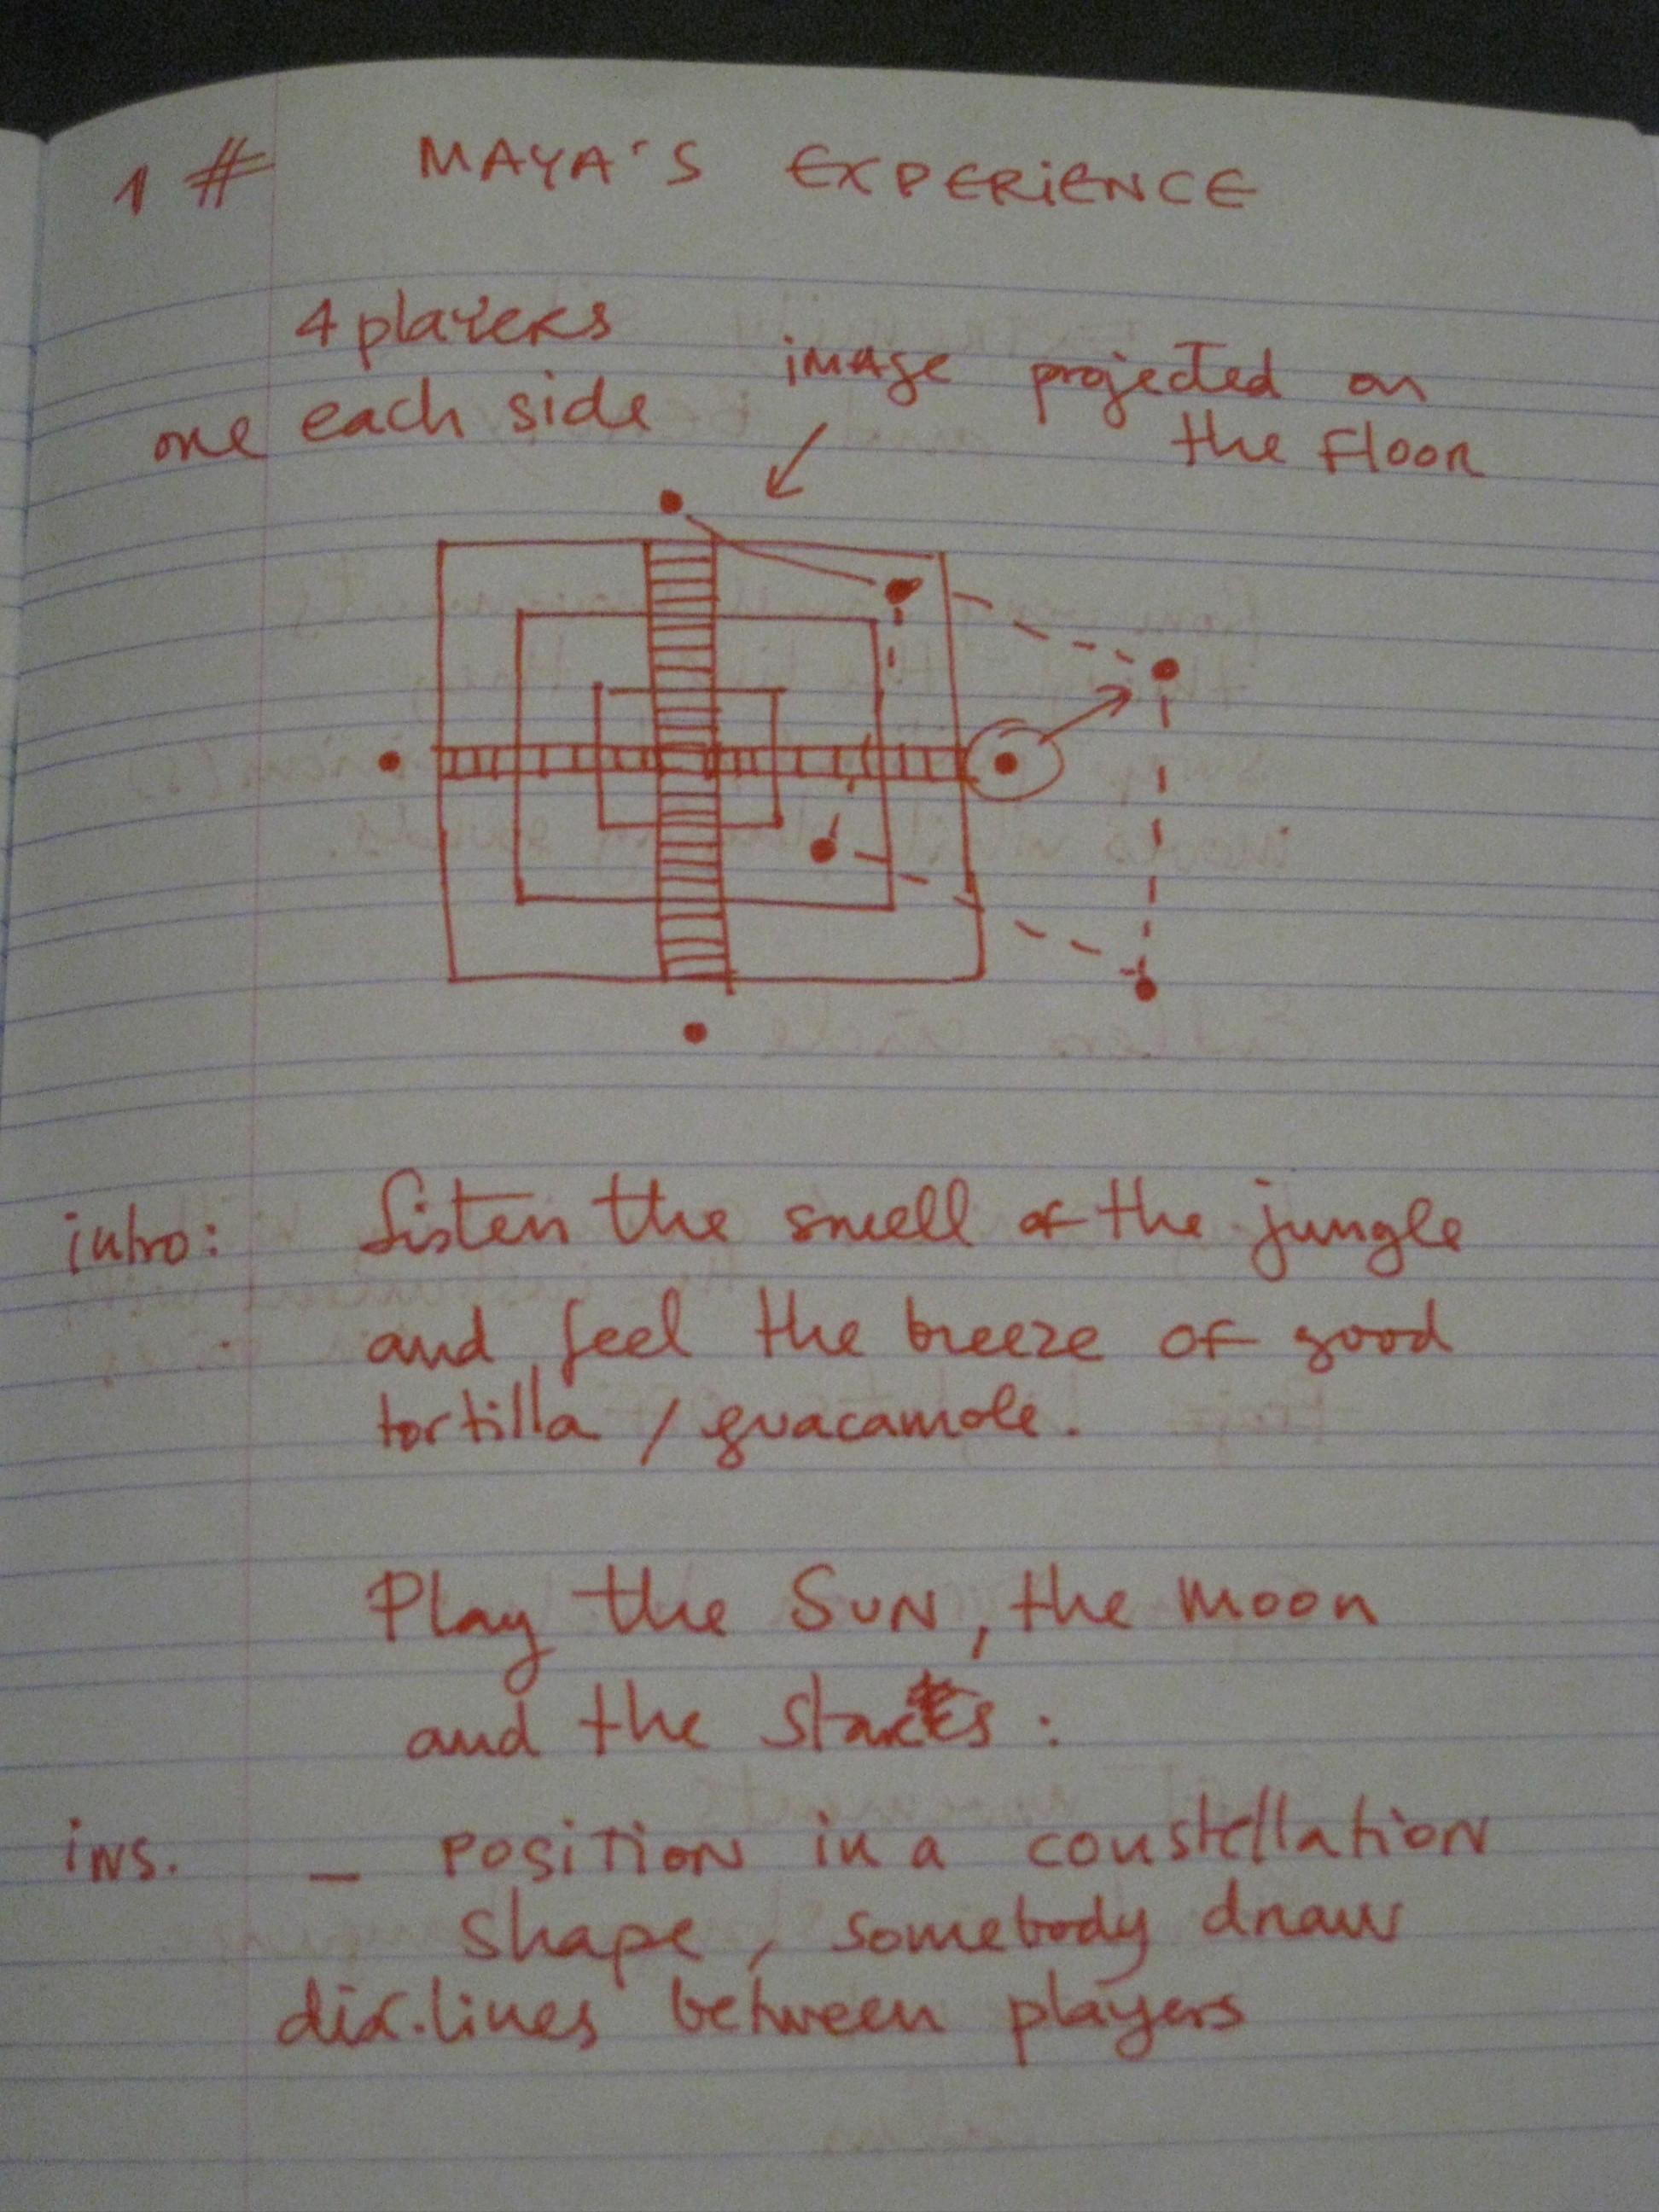 1# MAYA'S EXPERIENCE
4 players
one each side
image projected on
the floor
intro: Listen the smell of the jungle
and feel the breeze of good
tortilla / guacamole.
Play the SUN, the moon
and the stars:
ins. - position in a constellation
shape, somebody draw
lines between players